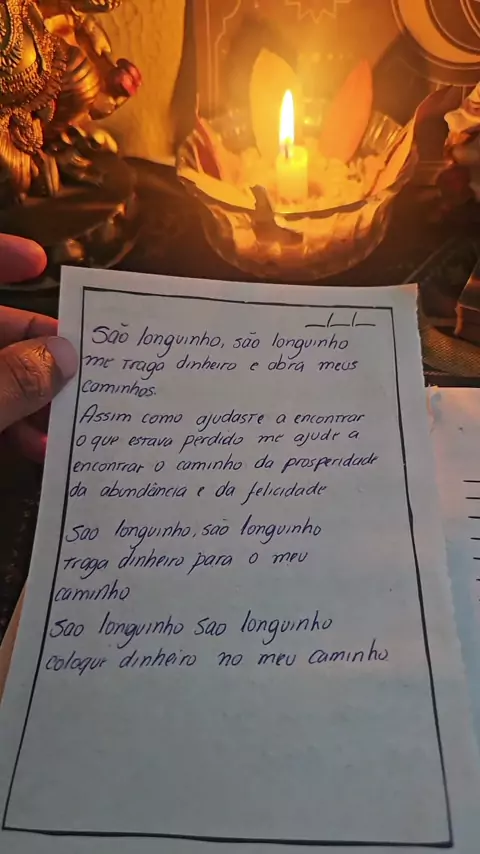 __/__/__
São longuinho, são longuinho
me traga dinheiro e abra meus
caminhos.
Assim como ajudaste a encontrar
o que estava perdido me ajude a
encontrar o caminho da prosperidade
da abundância e da felicidade
Sao longuinho, são longuinho
traga dinheiro para o meu
caminho
Sao longuinho sao longuinho
coloque dinheiro no meu caminho